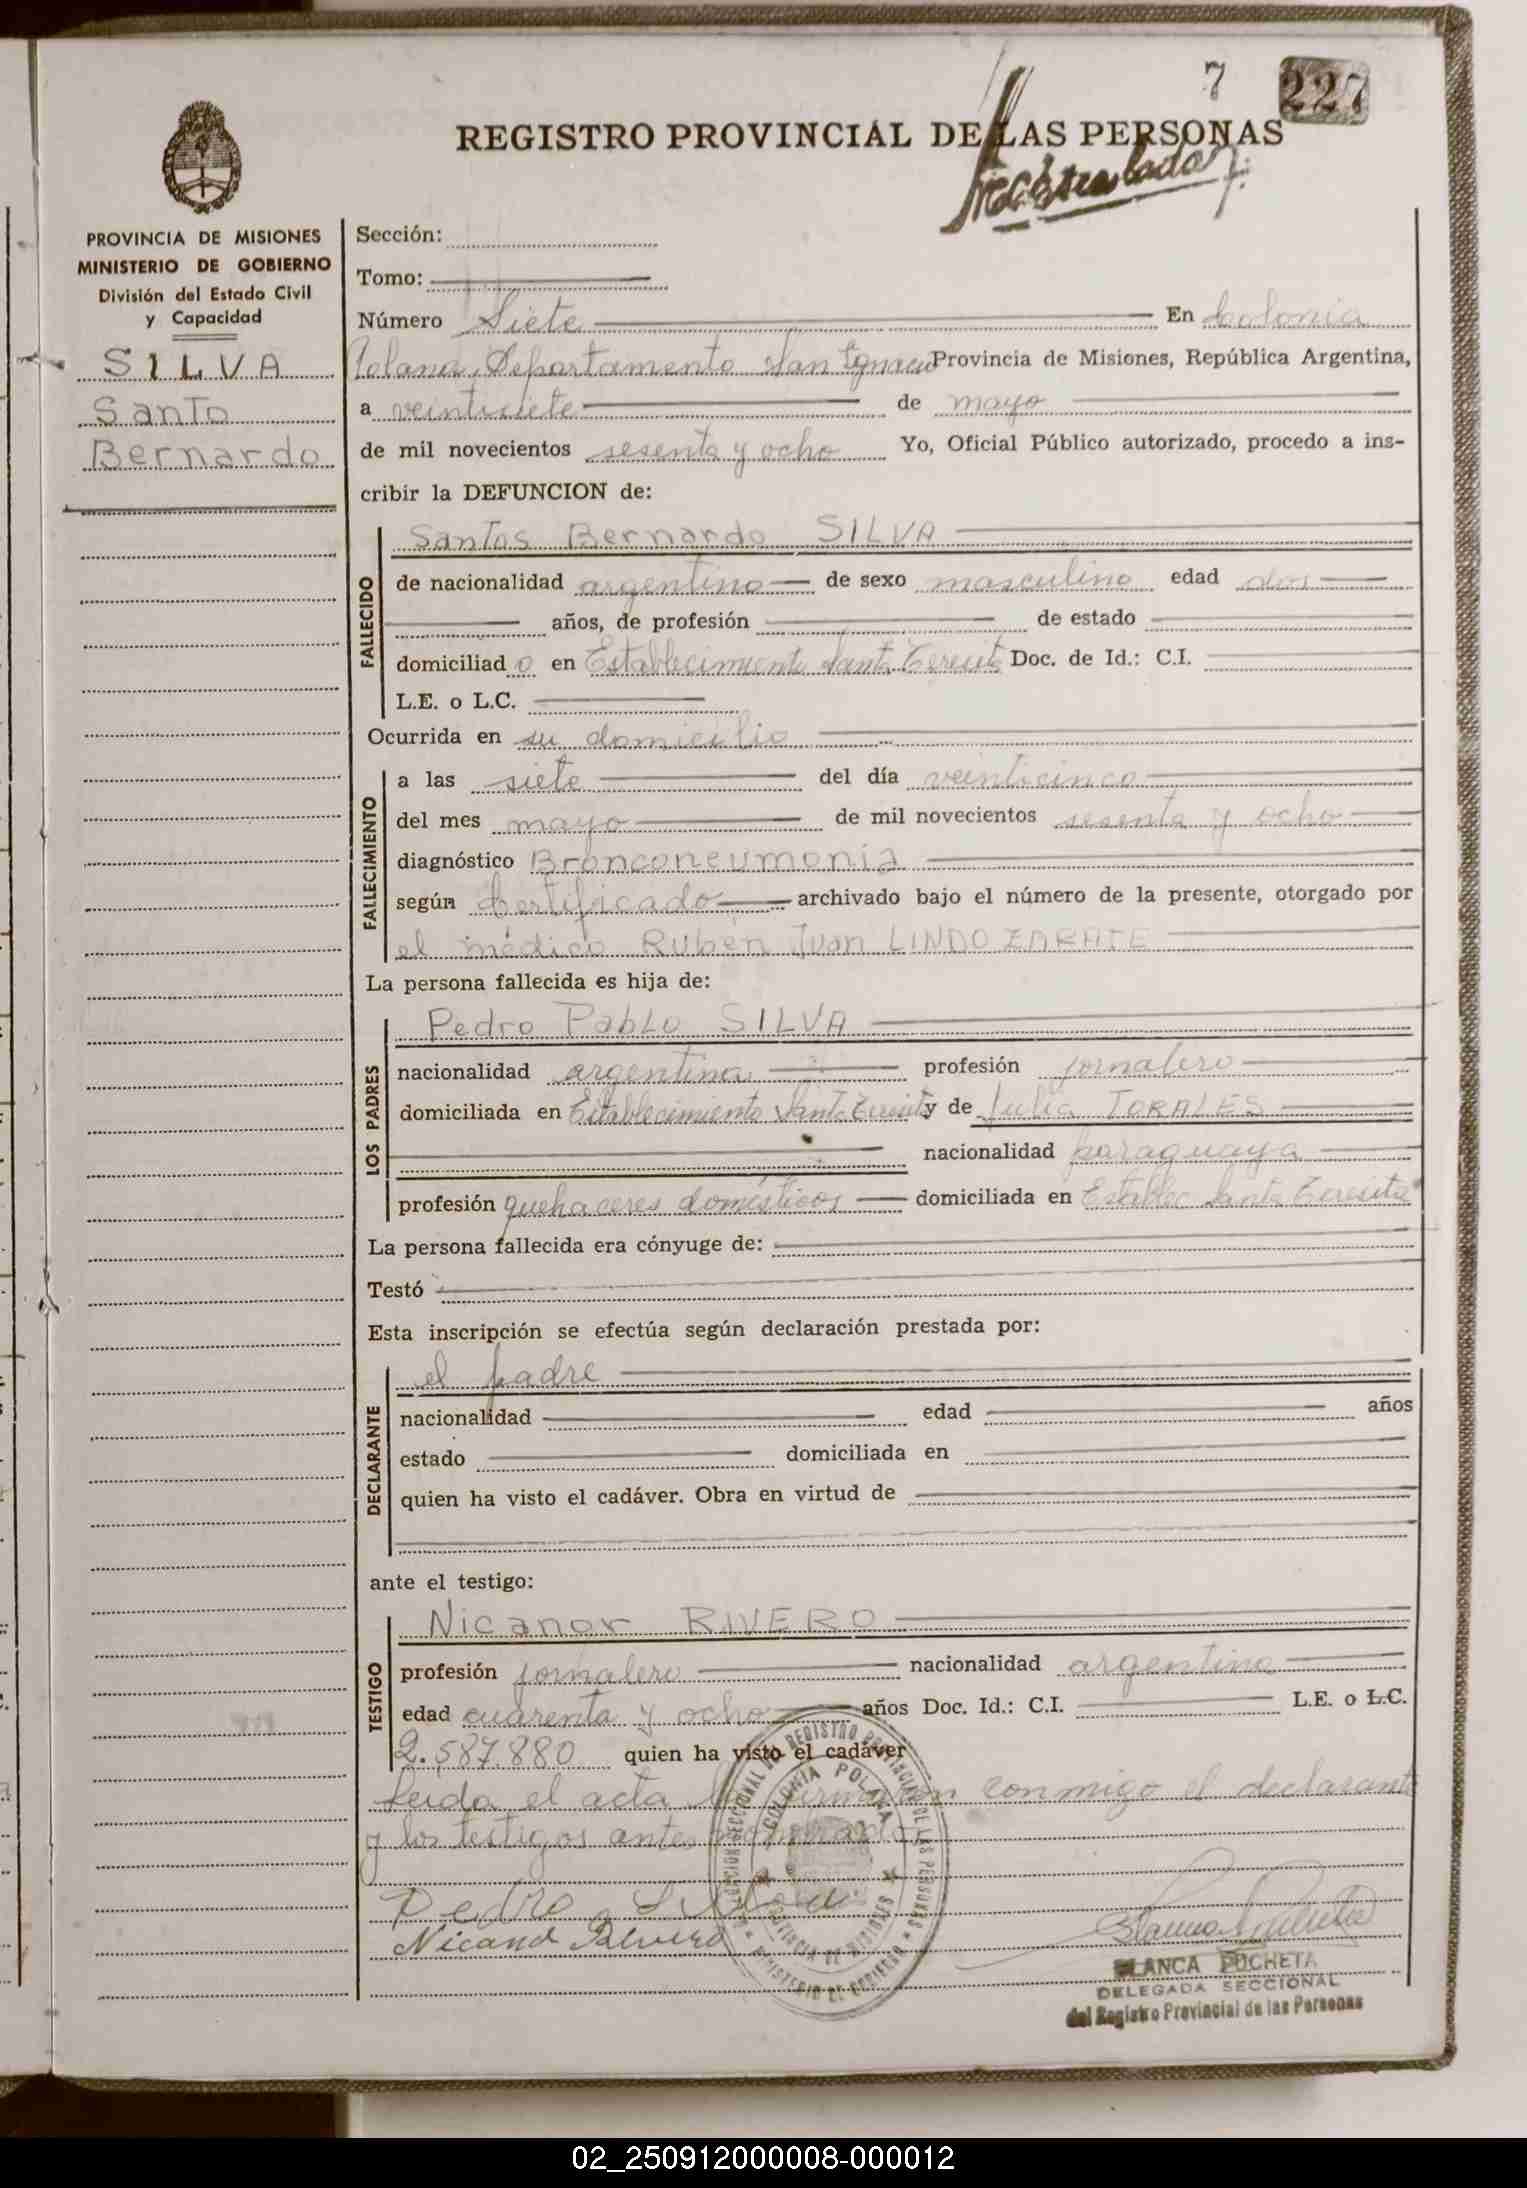 7 227
REGISTRO PROVINCIAL DE LAS PERSONAS
PROVINCIA DE MISIONES
MINISTERIO DE GOBIERNO
División del Estado Civil
y Capacidad
SILVA
Santo
Bernardo
Sección:
Tomo:
Número Siete En Colonia
Polana, Departamento San Ignacio Provincia de Misiones, República Argentina,
a veintisiete de mayo
de mil novecientos sesenta y ocho Yo, Oficial Público autorizado, procedo a ins-
cribir la DEFUNCION de:
FALLECIDO
Santos Bernardo SILVA
de nacionalidad argentino de sexo masculino edad dos
años, de profesión de estado
domiciliado en Establecimiento Santa Teresita Doc. de Id.: C.I.
L.E. o L.C.
Ocurrida en su domicilio
FALLECIMIENTO
a las siete del día veinticinco
del mes mayo de mil novecientos sesenta y ocho
diagnóstico Bronconeumonia
según Certificado archivado bajo el número de la presente, otorgado por
el médico Rubén Juan LINDO ZARATE
La persona fallecida es hija de:
LOS PADRES
Pedro Pablo SILVA
nacionalidad argentina profesión jornalero
domiciliada en Establecimiento Santa Teresita y de Julia TORALES
nacionalidad paraguaya
profesión quehaceres domésticos domiciliada en Establec Santa Teresita
La persona fallecida era cónyuge de:
Testó
Esta inscripción se efectúa según declaración prestada por:
DECLARANTE
el padre
nacionalidad edad años
estado domiciliada en
quien ha visto el cadáver. Obra en virtud de
ante el testigo:
TESTIGO
Nicanor RIVERO
profesión jornalero nacionalidad argentina
edad cuarenta y ocho años Doc. Id.: C.I. L.E. o L.C.
2.587.880 quien ha visto el cadáver
Leida el acta la firmaron conmigo el declarante
y los testigos antes nombrado
Pedro Silva
Nicano Rivero
COLONIA POLANA
PROVINCIA DE MISIONES
MINISTERIO DE GOBIERNO
BLANCA POCHETA
DELEGADA SECCIONAL
del Registro Provincial de las Personas
02_250912000008-000012